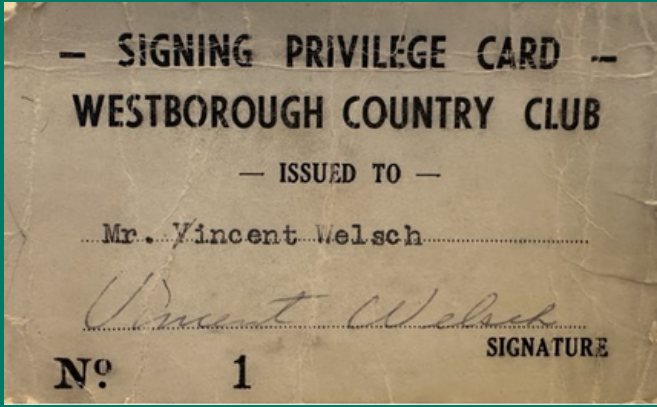 — SIGNING PRIVILEGE CARD —
WESTBOROUGH COUNTRY CLUB
— ISSUED TO —
Mr. Vincent Welsch
Vincent Welsch
SIGNATURE
Nº 1